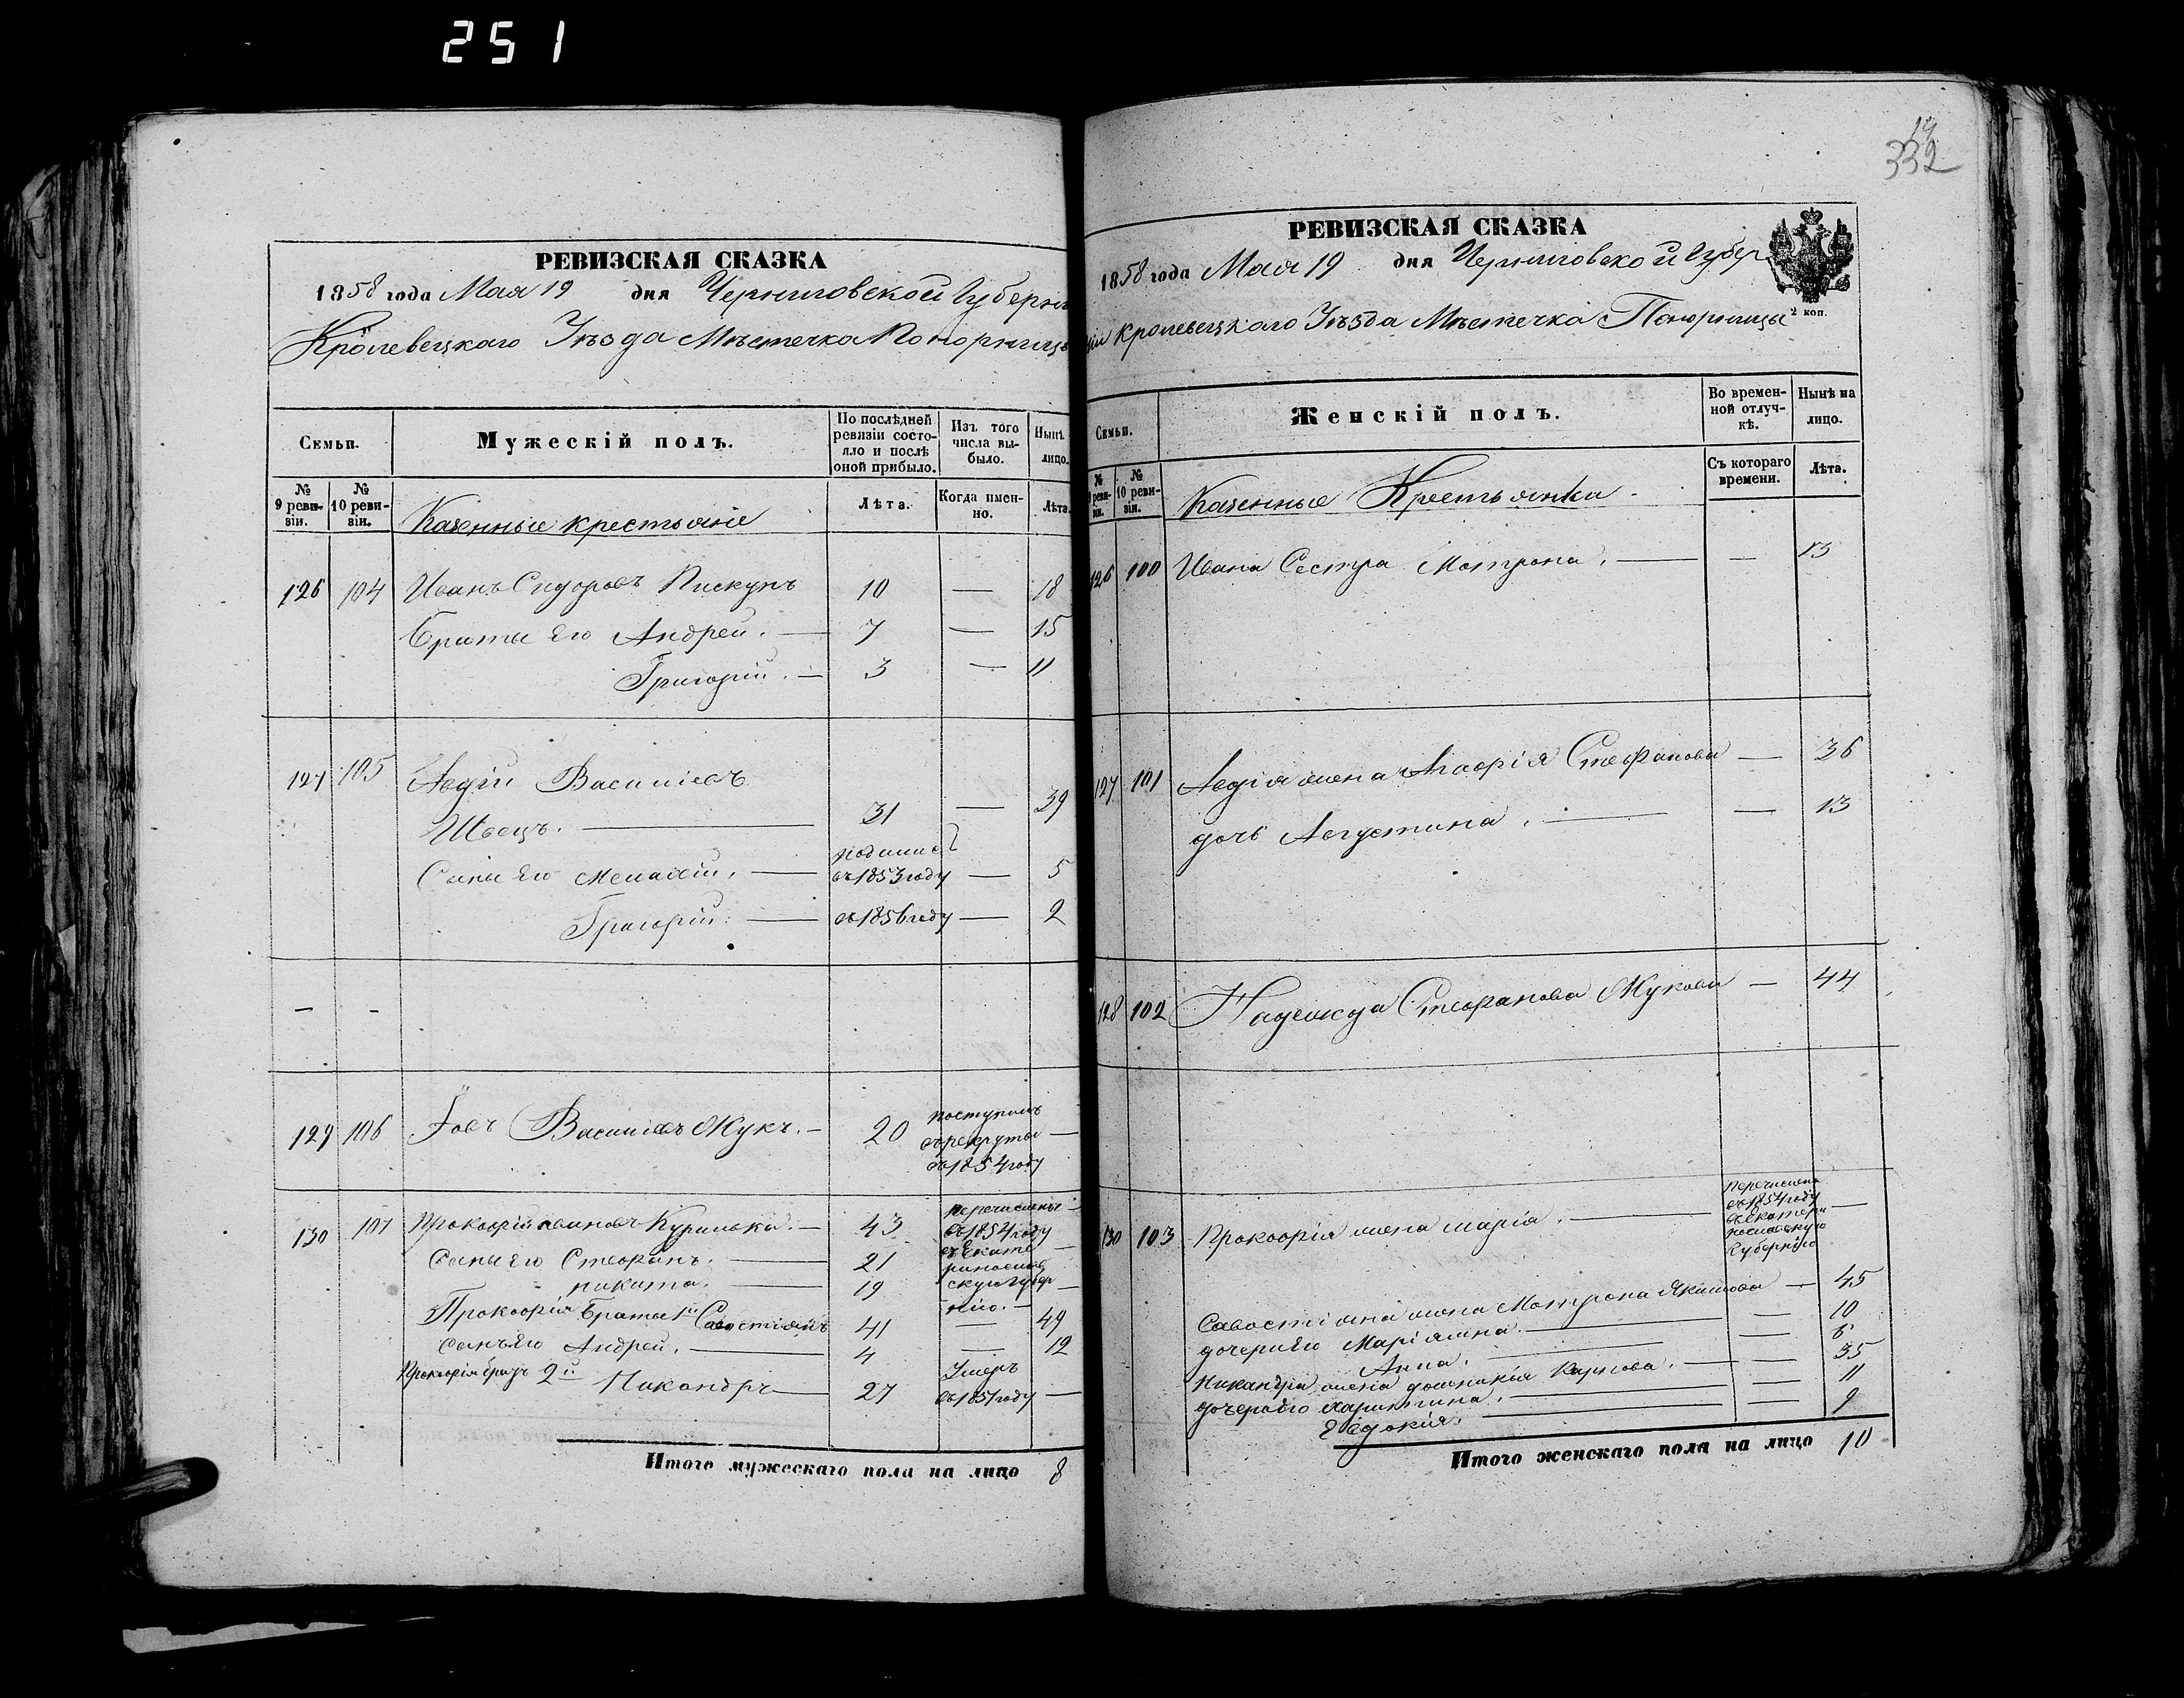 251
РЕВИЗСКАЯ СКАЗКА
1858 года Мая 19 дня Черниговской Губерн
Кролевецкаго Уѣзда Мѣстечка Понорницы
Семьи.
Мужескій полъ.
По послѣдней ревизіи состояло и послѣ оной прибыло.
Изъ того числа выбыло.
Нынѣ лицо.
№ 9 ревизіи.
№ 10 ревизіи.
Казенные крестьяне
Лѣта.
Когда именно.
Лѣта.
126 104 Иванъ Сидоровъ Пискунъ 10 — 18
Братья Его Андрей. — 7 — 15
Григорій. — 3 — 11
127 105 Авдій Василіевъ
Швецъ. — 31 — 39
родились
Сыны Его — въ 1853 году — 5
Григорій. — въ 1856 году — 2
- -
129 106 Іовъ Василіевъ Жукъ. — 20 поступилъ въ рекруты въ 1854 году —
130 107 Прокофій Ивановъ Курилька. — 43 перечислены въ 1854 году въ Екатеринославскую Губернію. —
Сыны Его Стефанъ. — 21 —
Никита. — 19 —
Прокофія Братья 1й Савостіянъ 41 — 49
Сынъ Его Андрей. — 4 — 12
Прокофія братъ 2й Никандръ — 27 Умеръ въ 1857 году —
Итого мужескаго пола на лицо 8
14
332
РЕВИЗСКАЯ СКАЗКА
1858 года Мая 19 дня Черниговской Губер
ніи Кролевецкаго Уѣзда Мѣстечка Понорницы
2 коп.
Семьи.
Женскій полъ.
Во временной отлучкѣ.
Нынѣ на лицо.
№ 9 ревизіи.
№ 10 ревизіи.
Казенные Крестьянки
Съ котораго времени.
Лѣта.
126 100 Ивана Сестра Мотрона. — — 13
127 101 Авдія жена Агафія Стефанова — 36
дочь Августина. — — 13
128 102 Надежда Стефанова Жукова — 44
130 103 Прокофія жена Марія. — перечислена въ 1854 году въ Екатеринославскую Губернію —
Савостіяна жена Мотрона Якимова — 45
дочери Его Маріамна. — — 10
Анна. — — 6
Никандра жена Домникія Карпова. — — 35
дочери Его Харитина. — — 11
Евдокія. — — 9
Итого женскаго пола на лицо 10